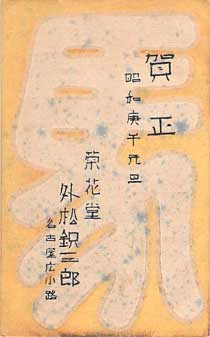 馬
賀正
昭和庚午元旦
菊花堂
外松鈬三郎
名古屋広小路